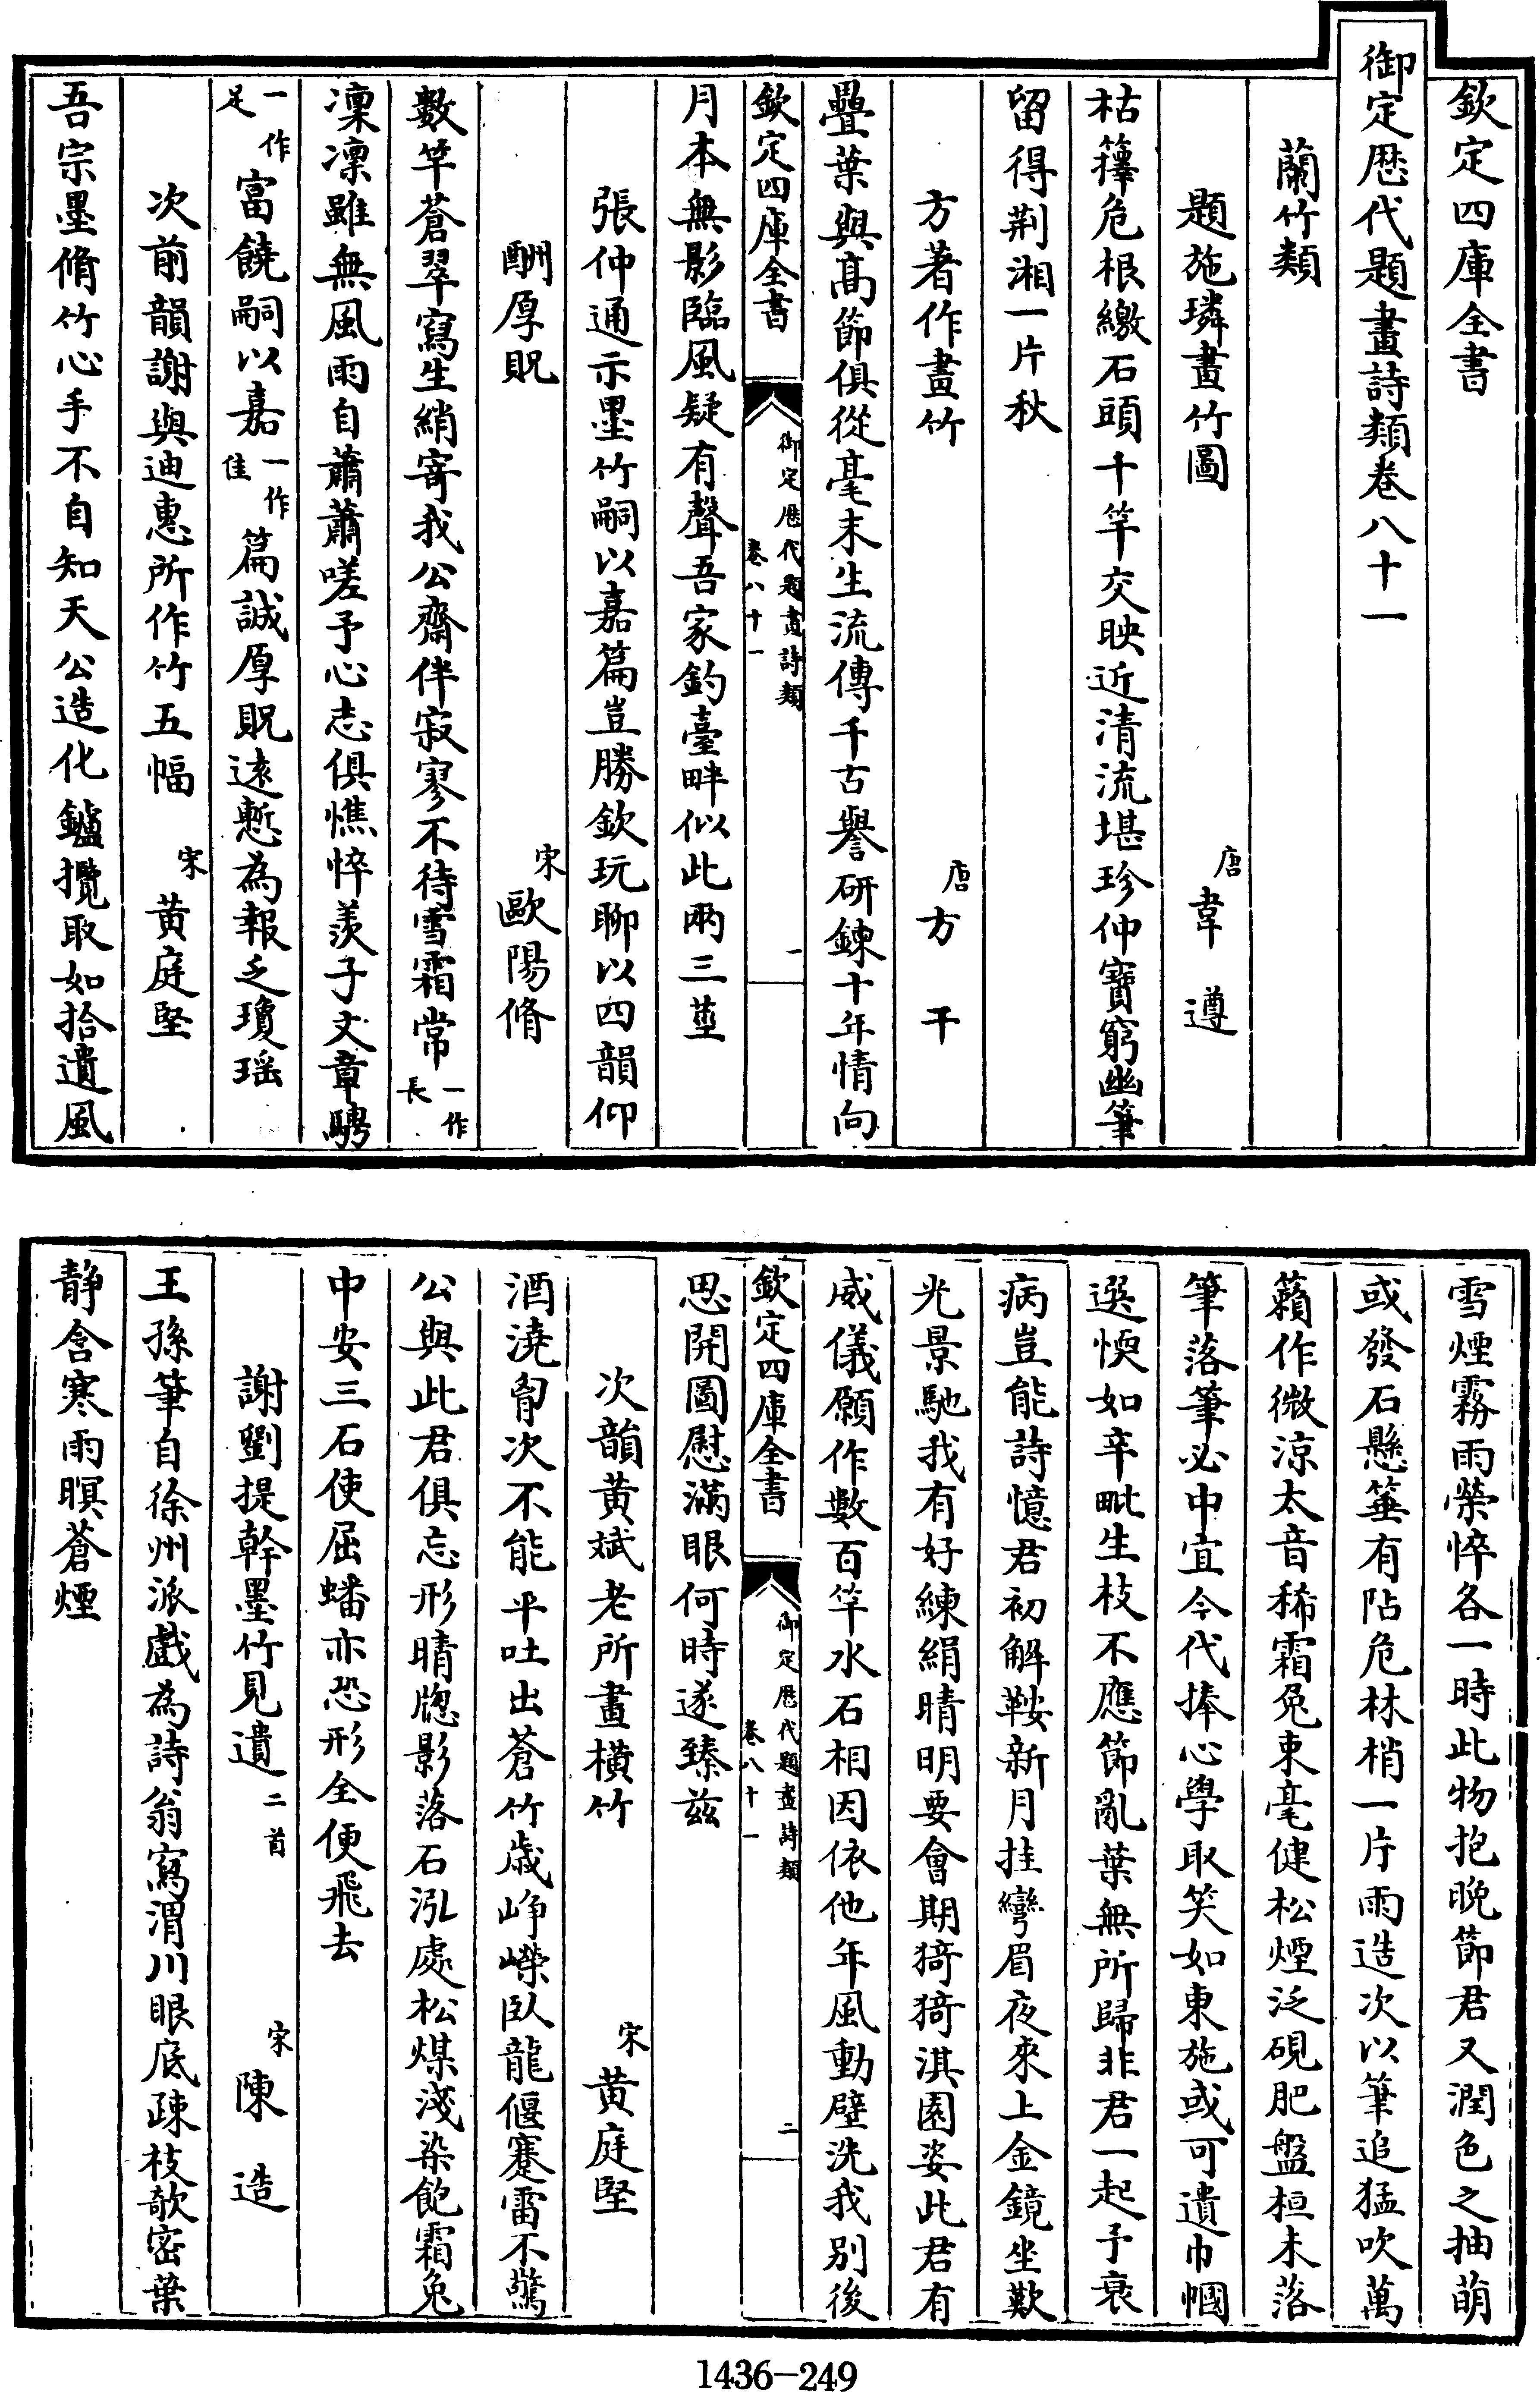 欽定四庫全書
御定歴代題畫詩類卷八十一
蘭竹類
題施璘畫竹圖　唐　韋遵
枯籜危根繳石頭十竿交映近清流堪珍仲寶窮幽筆
留得荆湘一片秋
方著作畫竹　唐　方干
疊葉與髙節俱從毫末生流傳千古譽研鍊十年情向
欽定四庫全書　御定歴代題畫詩類　卷八十一　一
月本無影臨風疑有聲吾家釣臺畔似此兩三莖
張仲通示墨竹嗣以嘉篇豈勝欽玩聊以四韻仰
酬厚貺　宋　歐陽脩
數竿蒼翠寫生綃寄我公齋伴寂寥不待雪霜常一作長
凜凜雖無風雨自蕭蕭嗟予心志俱憔悴羨子文章騁
一作足富饒嗣以嘉一作佳篇誠厚貺逺慙為報乏瓊瑶
次前韻謝與迪惠所作竹五幅　宋　黄庭堅
吾宗墨脩竹心手不自知天公造化鑪攬取如拾遺風
雪煙霧雨榮悴各一時此物抱晚節君又潤色之抽萌
或發石懸箠有阽危林梢一片雨造次以筆追猛吹萬
籟作微涼太音稀霜兔束毫健松煙泛硯肥盤桓未落
筆落筆必中宜今代捧心學取笑如東施或可遺巾幗
選愞如辛毗生枝不應節亂葉無所歸非君一起予衰
病豈能詩憶君初解鞍新月挂彎眉夜來上金鏡坐歎
光景馳我有好練絹晴明要會期猗猗淇園姿此君有
威儀願作數百竿水石相因依他年風動壁洗我别後
欽定四庫全書　御定歴代題畫詩類　卷八十一　二
思開圖慰滿眼何時遂臻兹
次韻黄斌老所畫横竹　宋　黄庭堅
酒澆胷次不能平吐出蒼竹歲峥嶸臥龍偃蹇雷不驚
公與此君俱忘形晴牕影落石泓處松煤淺染飽霜兔
中安三石使屈蟠亦恐形全便飛去
謝劉提幹墨竹見遺二首　宋　陳造
王孫筆自徐州派戯為詩翁寫渭川眼底疎枝欹密葉
静含寒雨暝蒼煙
1436-249